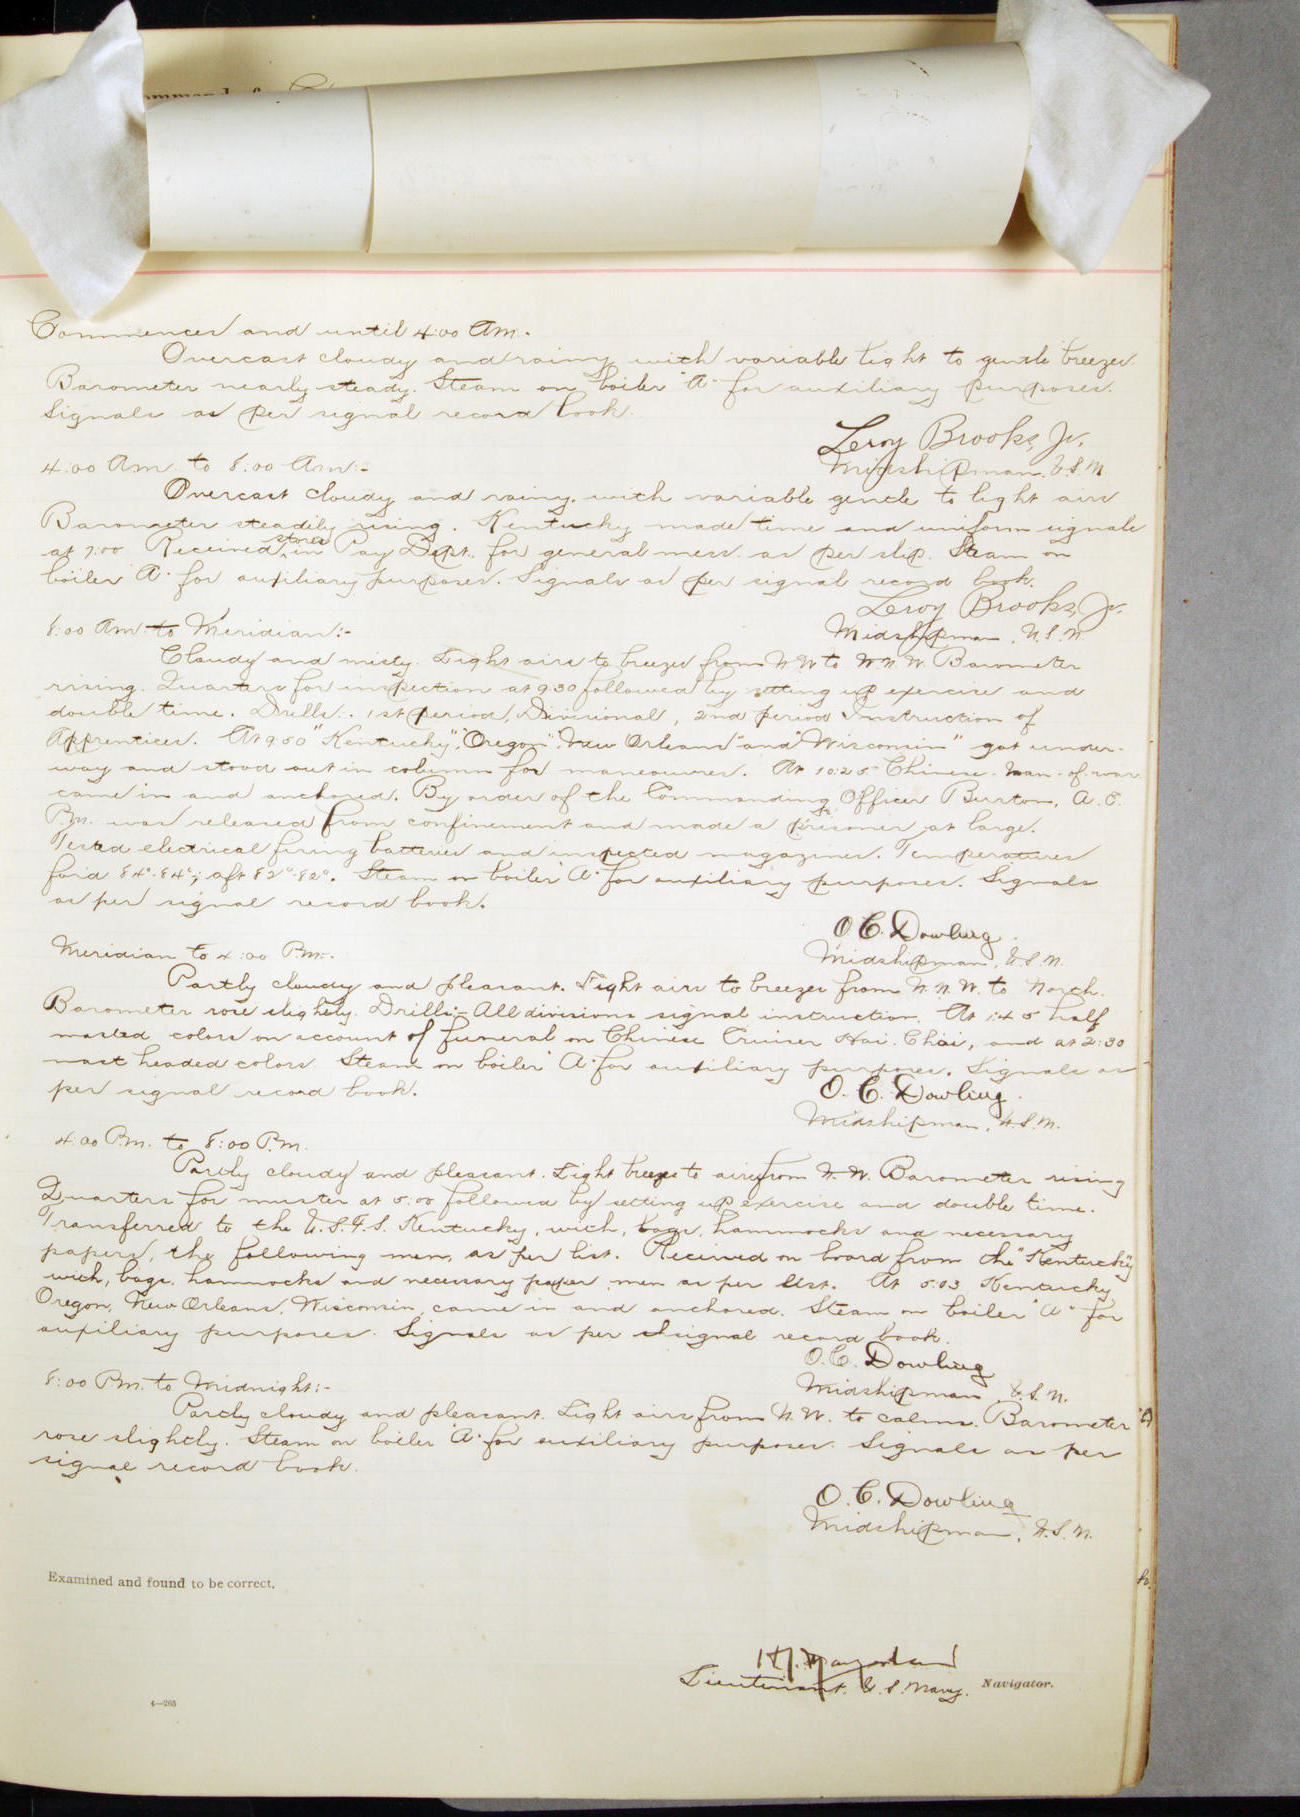 Commences and until 4:00 Am.
Overcast cloudy and rainy with variable light to gentle breezes.
Barometer nearly steady. Steam on boiler "A" for auxiliary purposes.
Signals as per signal record book.
Leroy Brooks, Jr.
Midshipman, U.S.N.
4:00 Am to 8:00 Am:-
Overcast cloudy and rainy, with variable gentle to light airs
Barometer steadily rising. Kentucky made time and uniform signals
at 7:00 Received stores in Pay Dept. for general mess as per slip. Steam on
boiler "A" for auxiliary purposes. Signals as per signal record book.
Leroy Brooks, Jr.
Midshipman, U.S.N.
8:00 Am to Meridian:-
Cloudy and misty. Light airs to breezes from N.W. to W.N.W. Barometer
rising. Quarters for inspection at 9:30 followed by setting up exercise and
double time. Drills:- 1st period, Divisional, 2nd period Instruction of
Apprentices. At 9:50 "Kentucky", "Oregon", "New Orleans" and "Wisconsin" got under-
way and stood out in column for maneouvres. At 10:25 Chinese Man-of-war
came in and anchored. By order of the Commanding Officer Burton, A. C.
P.M. was released from confinement and made a prisoner at large.
Tested electrical firing batteries and inspected magazines. Temperatures
for'd 84°-84°; aft 82°-82°. Steam on boiler "A" for auxiliary purposes. Signals
as per signal record book.
O. C. Dowling
Midshipman, U.S.N.
Meridian to 4:00 P.M:-
Partly cloudy and pleasant. Light airs to breezes from N.N.W. to North.
Barometer rose slightly. Drills:- All divisions signal instruction. At 1:45 half
masted colors on account of funeral on Chinese Cruiser Hai Chai, and at 2:30
mast headed colors. Steam on boiler "A" for auxiliary purposes. Signals as
per signal record book.
O. C. Dowling
Midshipman, U.S.N.
4:00 P.M. to 8:00 P.M.
Partly cloudy and pleasant. Light breezes to airs from N.W. Barometer rising
Quarters for muster at 5:00 followed by setting up exercise and double time.
Transferred to the U.S.F.S. Kentucky, with, bags, hammocks and necessary
papers, the following men, as per list. Received on board from the "Kentucky"
with, bags, hammocks and necessary paper, men as per list. At 5:03 Kentucky,
Oregon, New Orleans, Wisconsin, came in and anchored. Steam on boiler "A" for
auxiliary purposes. Signals as per signal record book.
O. C. Dowling
Midshipman, U.S.N.
8:00 P.M. to Midnight:-
Partly cloudy and pleasant. Light airs from N.W. to calms. Barometer
rose slightly. Steam on boiler "A" for auxiliary purposes. Signals as per
signal record book.
O. C. Dowling
Midshipman, U.S.N.
Examined and found to be correct.
Lieutenant. U.S. Navy. Navigator.
4—265